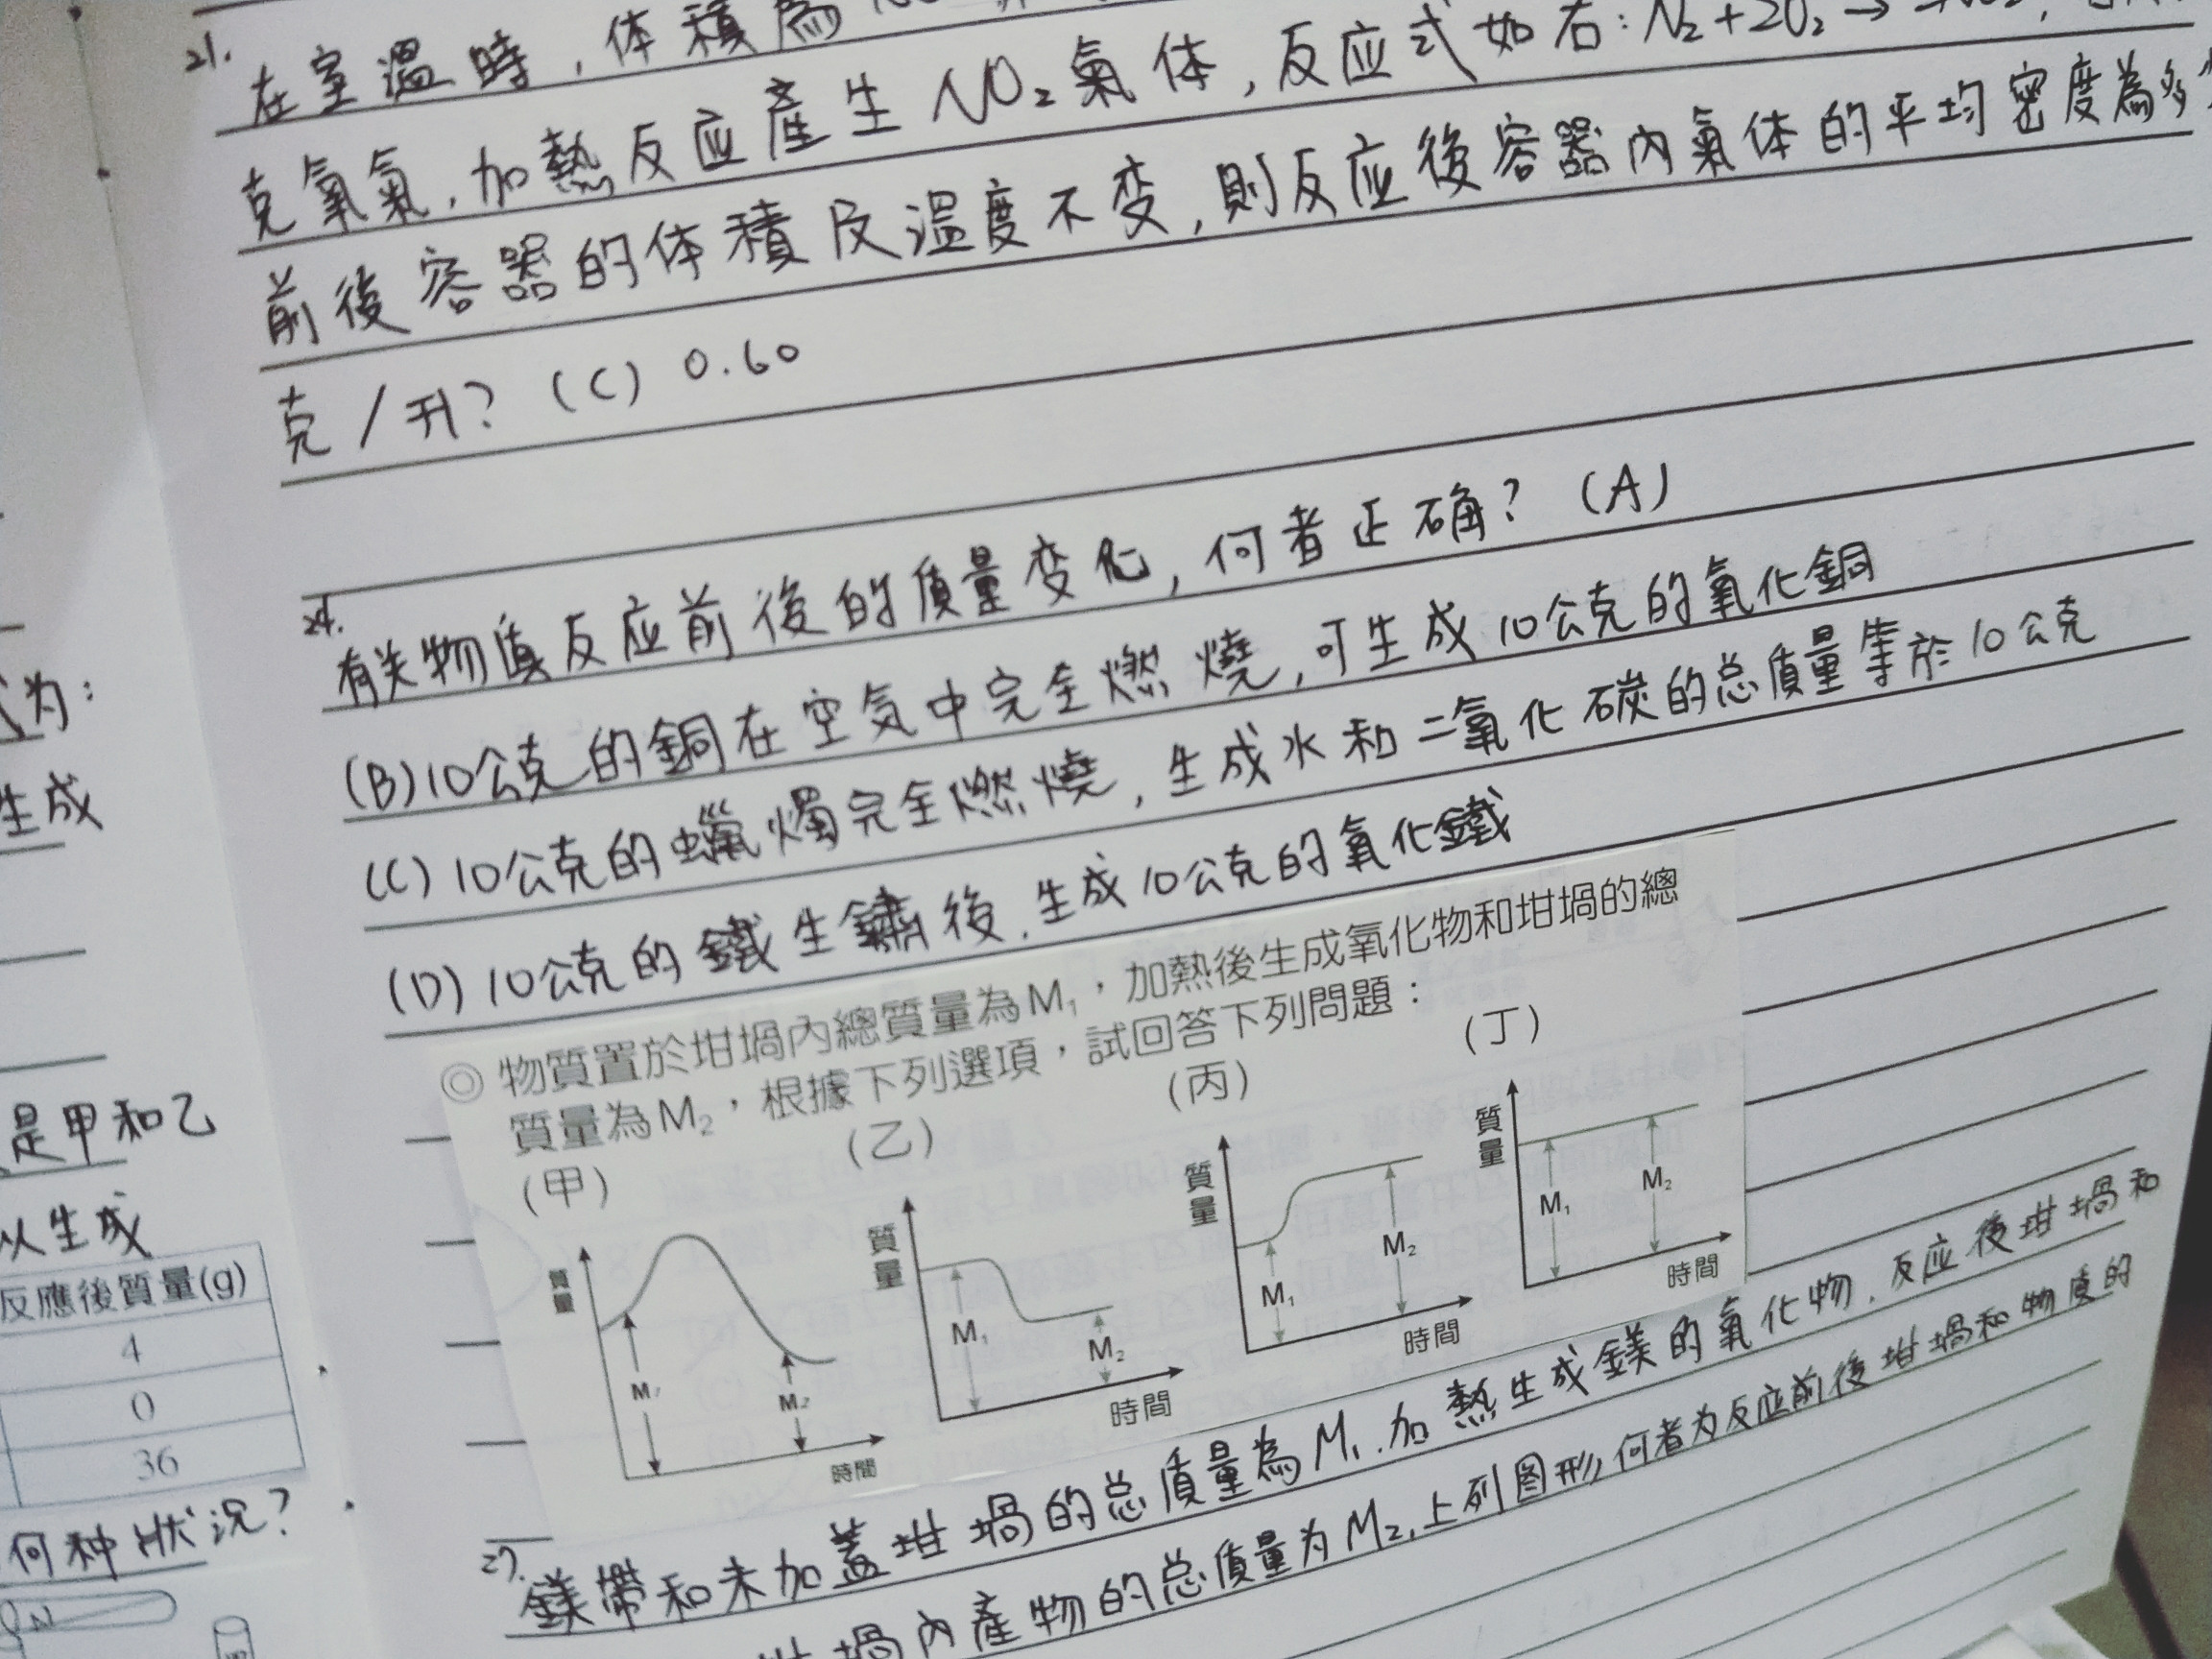 为:
生成
是甲和乙
以生成
反應後質量(g)
4
0
36
何种狀況?
N
21.
在室溫時,体積為
克氧氣,加熱反应產生NO₂氣体,反应式如右:N₂+2O₂→
前後容器的体積及溫度不变,則反应後容器內氣体的平均密度為多
克/升? (C) 0.60
24.
有关物質反应前後的質量变化,何者正确? (A)
(B)10公克的銅在空気中完全燃燒,可生成10公克的氧化銅
(C)10公克的蠟燭完全燃燒,生成水和二氧化碳的总質量等於10公克
(D)10公克的鐵生鏽後,生成10公克的氧化鐵
◎ 物質置於坩堝內總質量為M₁,加熱後生成氧化物和坩堝的總
質量為M₂,根據下列選項,試回答下列問題:
(甲) (乙) (丙) (丁)
質量 M₁ M₂ 時間
質量 M₁ M₂ 時間
質量 M₁ M₂ 時間
質量 M₁ M₂ 時間
27.
鎂帶和未加蓋坩堝的总質量為M₁.加熱生成鎂的氧化物,反应後坩堝和
坩堝內產物的总質量为M₂,上列图形,何者为反应前後坩堝和物质的